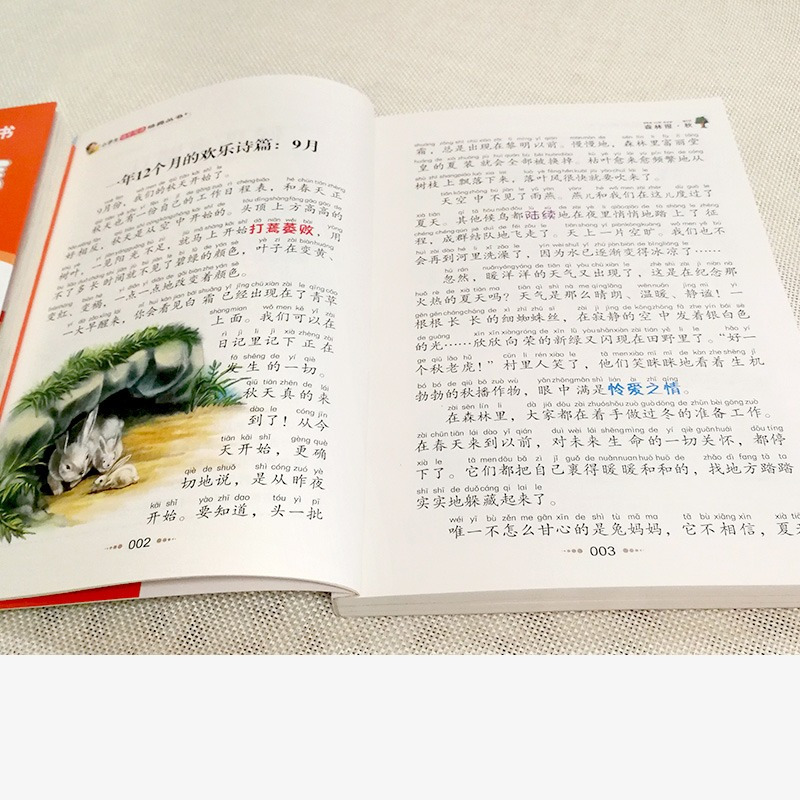 书
一年12个月的欢乐诗篇：9月
9月份，我们的秋天开始了。
秋天也有一份自己的工作日程表，和春天正
好相反，秋天是从空中开始的。头顶上方高高的
树叶，一见阳光不足，就马上开始打蔫萎败，用
不了多长时间就不见了碧绿的颜色，叶子在变黄、
变红、变褐，一点一点地改变着颜色。
一大早醒来，你会看见白霜已经出现在了青草
上面。我们可以在
日记里记下正在
发生的一切。
秋天真的来
到了！从今
天开始，更确
切地说，是从昨夜
开始。要知道，头一批
002
森林报·秋
霜，总是出现在黎明以前。慢慢地，森林里富丽堂
皇的夏装就会全部被换掉。枯叶愈来愈频繁地从
树枝上飘落下来，落叶风很快就要吹来了。
天空中不见了雨燕。燕儿和我们在这儿度过了
夏天。其他候鸟都陆续地在夜里悄悄地踏上了征
程，成群结队地飞走了。天上一片空旷。我们也不
会再到河里洗澡了，因为水已逐渐变得冰凉了……
忽然，暖洋洋的天气又出现了，这是在纪念那
火热的夏天吗？天气是那么晴朗、温暖、静谧！一
根根长长的细蜘蛛丝，在寂静的空中发着银白色
的光……欣欣向荣的新绿又闪现在田野里了。“好一
个秋老虎！”村里人笑了，他们笑眯眯地看着生机
勃勃的秋播作物，眼中满是怜爱之情。
在森林里，大家都在着手做过冬的准备工作。
在春天来到以前，对未来生命的一切关怀，都停
下了。它们都把自己裹得暖暖和和的，找地方踏踏
实实地躲藏起来了。
唯一不怎么甘心的是兔妈妈，它不相信，夏天
003